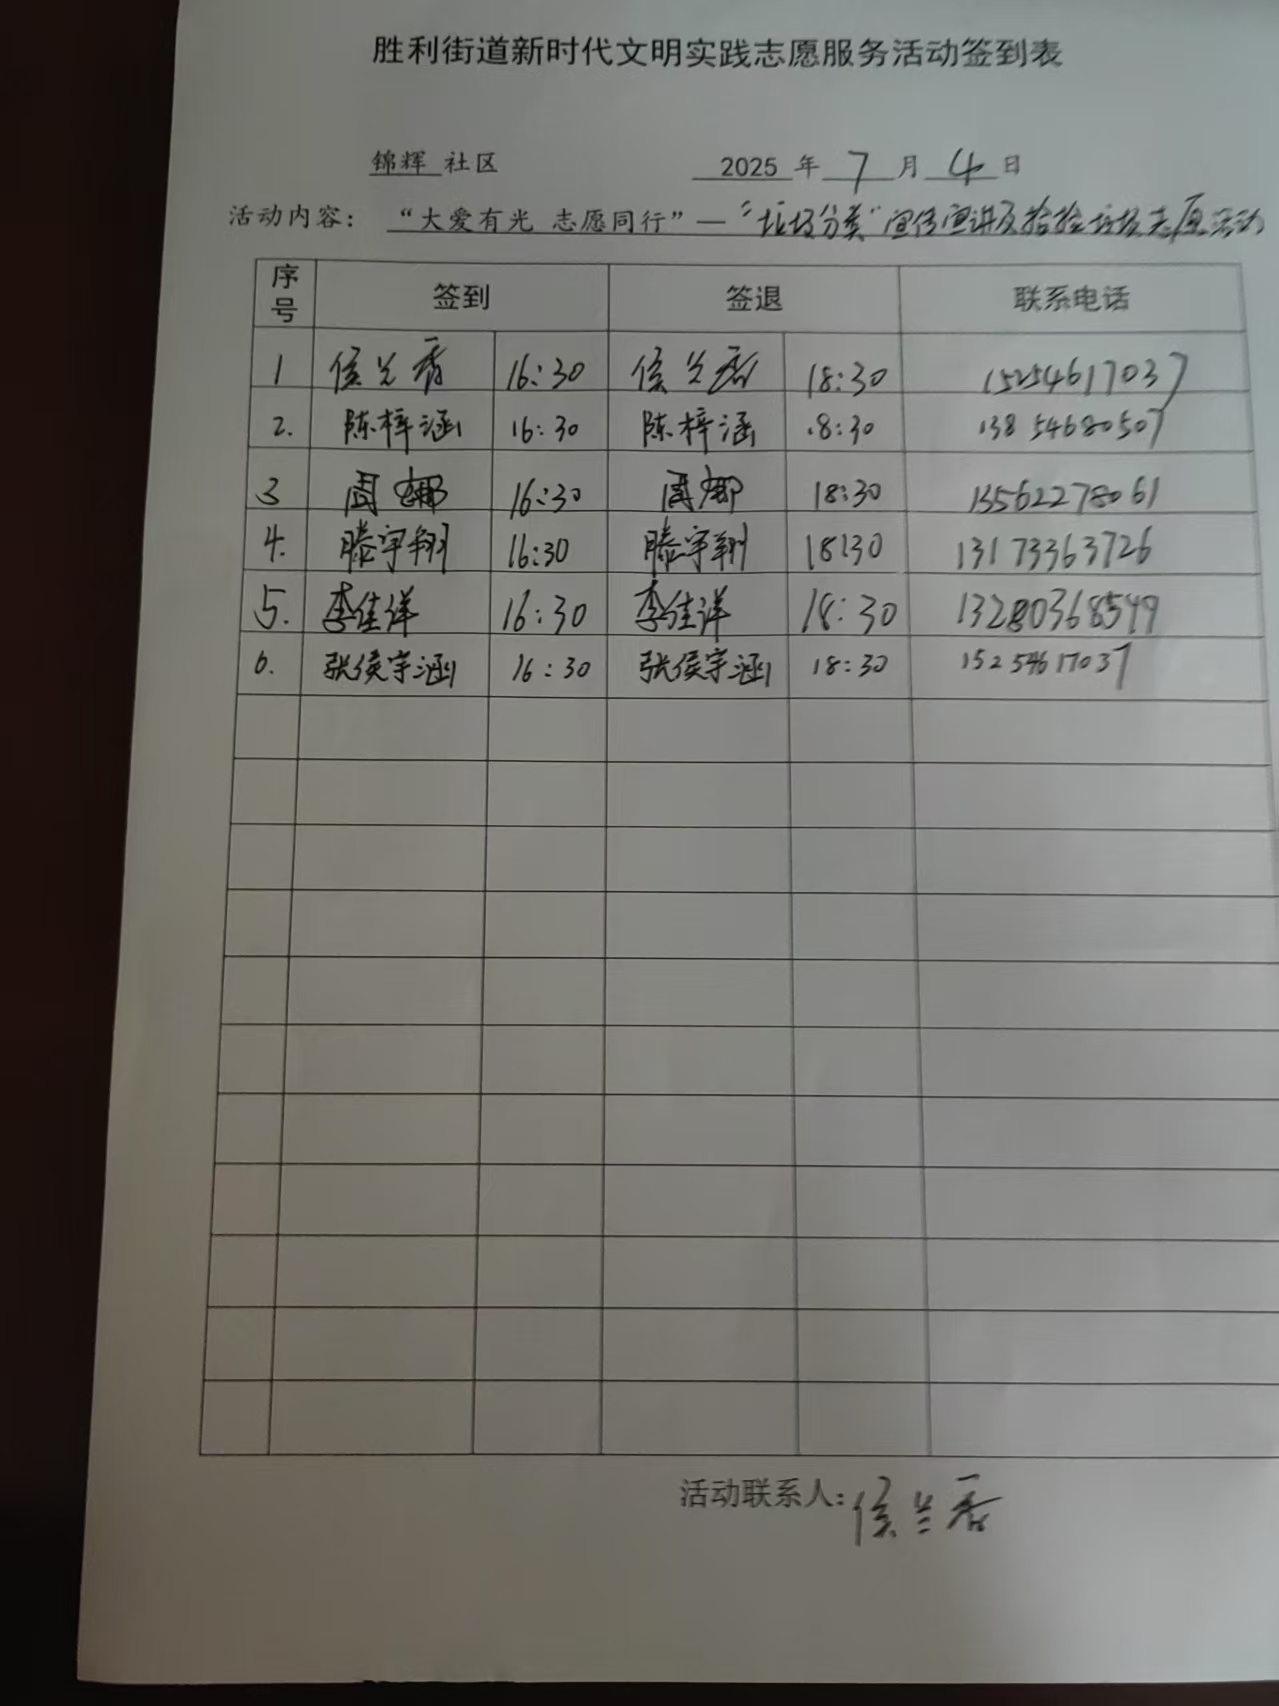 胜利街道新时代文明实践志愿服务活动签到表
锦辉 社区 2025 年 7 月 4 日
活动内容： “大爱有光 志愿同行”—“垃圾分类”宣传宣讲及捡捡垃圾志愿活动
序号 签到 签退 联系电话
1 侯兰香 16:30 侯兰香 18:30 15254617037
2. 陈梓涵 16:30 陈梓涵 18:30 13854680507
3 周娜 16:30 周娜 18:30 13562278061
4. 滕宇翔 16:30 滕宇翔 18:30 13173363726
5. 李佳洋 16:30 李佳洋 18:30 13280368549
6. 张侯宇涵 16:30 张侯宇涵 18:30 15254617037
活动联系人：侯兰香